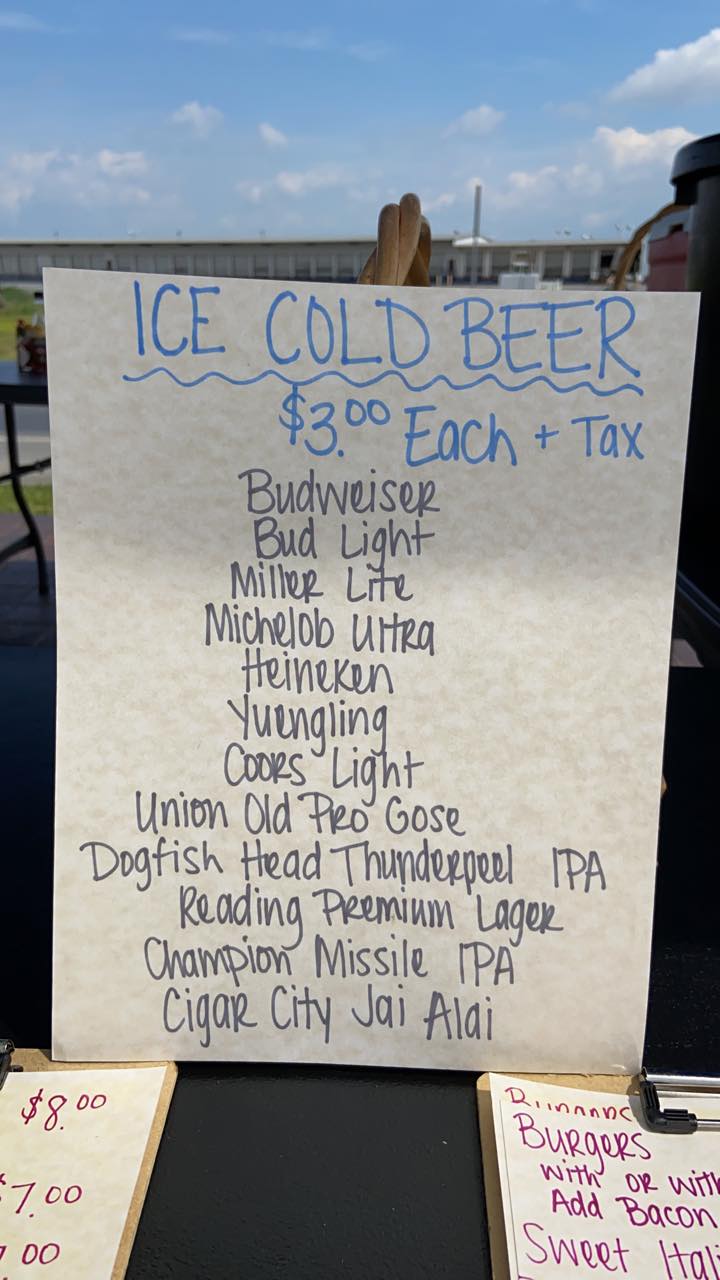 ICE COLD BEER
$3.00 Each + Tax
Budweiser
Bud Light
Miller Lite
Michelob Ultra
Heineken
Yuengling
Coors Light
Union Old Pro Gose
Dogfish Head Thunderpeel IPA
Reading Premium Lager
Champion Missile IPA
Cigar City Jai Alai
$8.00
$7.00
.00
Burgers
with or with
Add Bacon
Sweet Itali